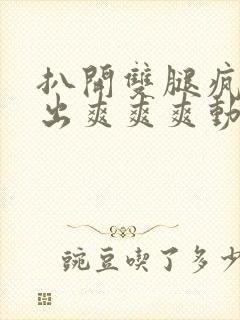 扒開雙腿瘋
出爽爽爽動
豌豆喫了多少